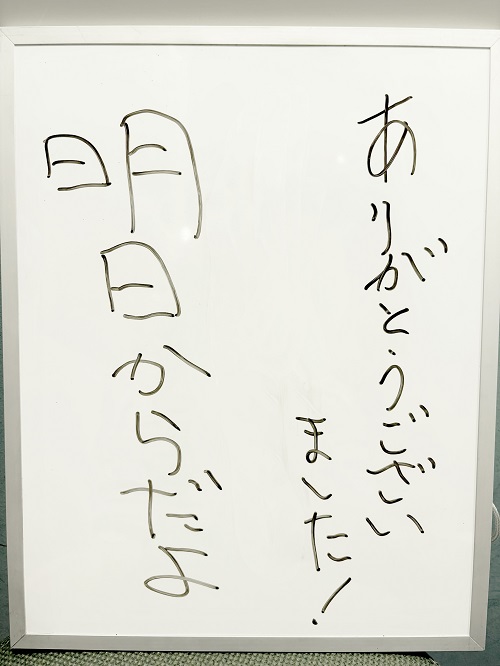 ありがとうござい
ました!
明日からだよ